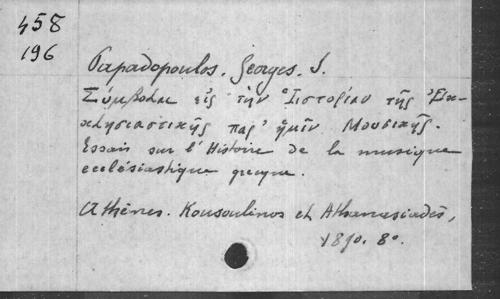 458
196
Papadopoulos, Georges. J.
Σύμβολαι εἰς τὴν Ἱστορίαν τῆς Ἐκ-
κλησιαστικῆς παρ' ἡμῖν Μουσικῆς.
Essais sur l'Histoire de la musique
ecclésiastique grecque.
Athènes. Kousoulinos et Athanasiadès,
1890. 8o.